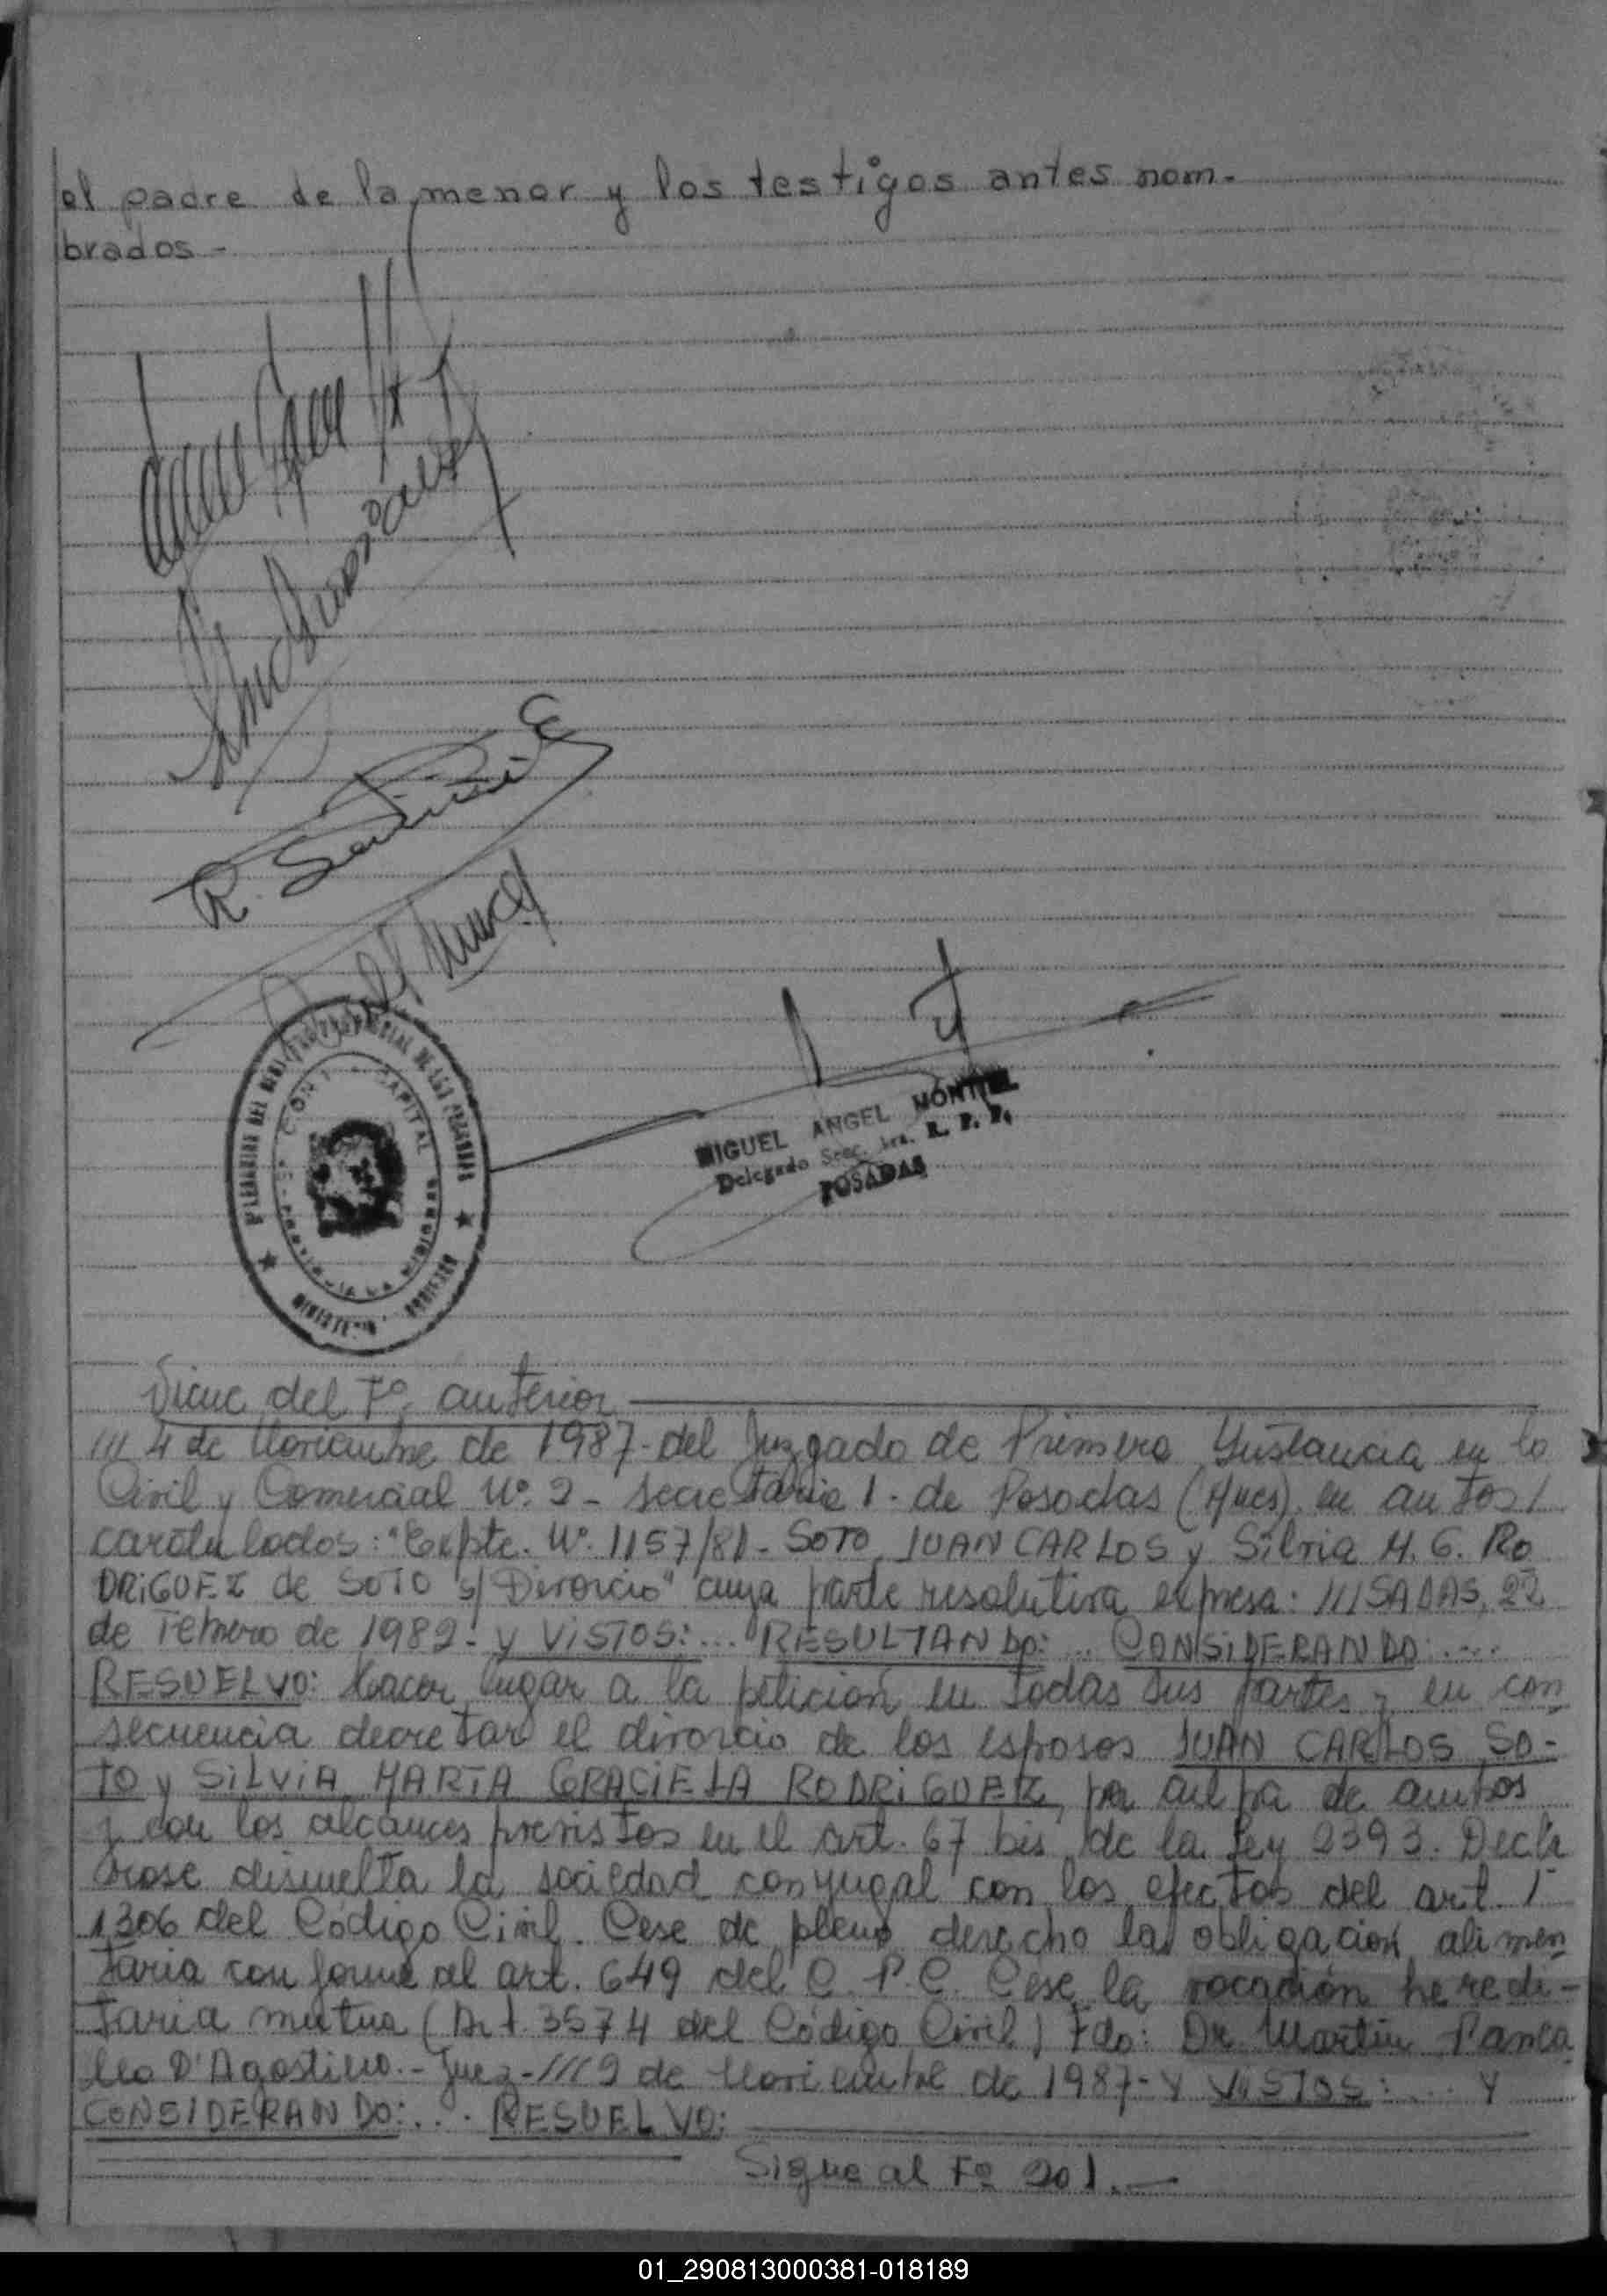 el padre de la menor y los testigos antes nom-
brados.-
R.
MIGUEL ANGEL MONTIEL
Delegado Secc. 1ra. R. P. P.
POSADAS
CAPITAL
Viene del Fº anterior
/// 4 de Noviembre de 1987- del Juzgado de Primera Instancia en lo
Civil y Comercial Nº. 2 - Secretaria 1- de Posadas (Mnes). en autos/
carátulados: "Expte. Nº. 1157/81- SOTO, JUAN CARLOS y Silvia M. G. RO
DRiGUEZ de SOTO s/Divorcio" cuya parte resolutiva expresa: ///SADAS, 22
de Febrero de 1982- y ViSTOS:... RESULTANDO:... CONSiDERANDO:....
RESUELVO: Hacer lugar a la petición en todas sus partes y en con
secuencia decretar el divorcio de los esposos JUAN CARLOS SO-
TO y SiLViA MARTA GRACiELA RODRiGUEZ, por culpa de ambos
y con los alcances previstos en el art. 67 bis de la Ley 2393. Declá
rase disuelta la sociedad conyugal con los efectos del art. /
1306 del Código Civil. Cese de pleno derecho la obligación alimen
taria conforme al art. 649 del C. P. C. Cese la vocación heredi-
taria mutua (Art. 3574 del Código Civil) Fdo: Dr. Martin
D'Agostino.- Juez-///9 de Noviembre de 1987- Y ViSTOS:... Y
CONSIDERANDO:... RESUELVO:
Sigue al Fº 201.-
01_290813000381-018189